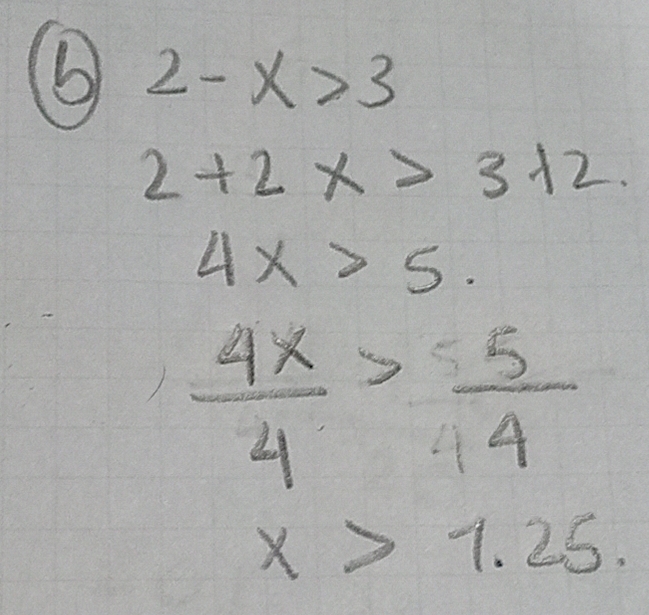 ⓑ 2-x>3
2+2x > 3+2.
4x > 5.
4x/4 > 5/4
x > 1.25.